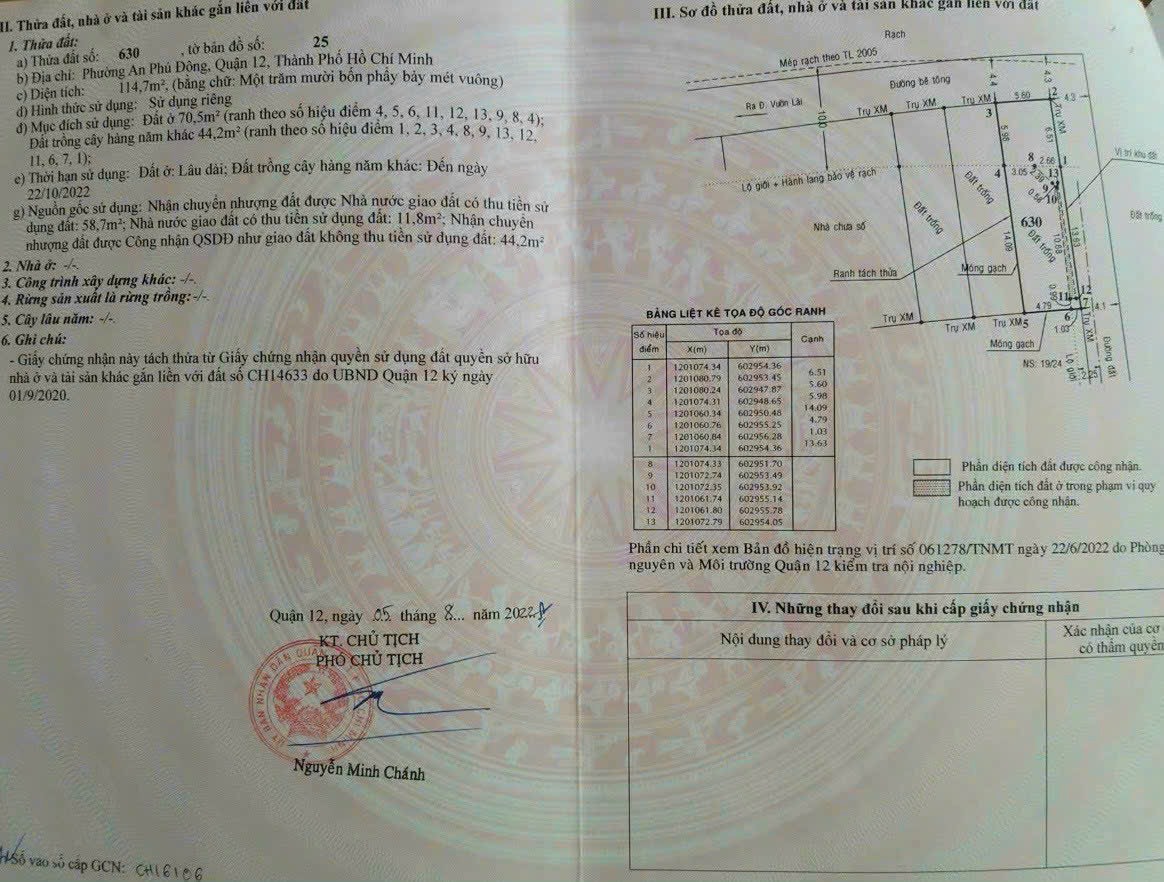 II. Thửa đất, nhà ở và tài sản khác gắn liền với đất
1. Thửa đất:
a) Thửa đất số: 630 , tờ bản đồ số: 25
b) Địa chỉ: Phường An Phú Đông, Quận 12, Thành Phố Hồ Chí Minh
c) Diện tích: 114,7m², (bằng chữ: Một trăm mười bốn phẩy bảy mét vuông)
d) Hình thức sử dụng: Sử dụng riêng
đ) Mục đích sử dụng: Đất ở 70,5m² (ranh theo số hiệu điểm 4, 5, 6, 11, 12, 13, 9, 8, 4);
Đất trồng cây hàng năm khác 44,2m² (ranh theo số hiệu điểm 1, 2, 3, 4, 8, 9, 13, 12,
11, 6, 7, 1);
e) Thời hạn sử dụng: Đất ở: Lâu dài; Đất trồng cây hàng năm khác: Đến ngày
22/10/2022
g) Nguồn gốc sử dụng: Nhận chuyển nhượng đất được Nhà nước giao đất có thu tiền sử
dụng đất: 58,7m²; Nhà nước giao đất có thu tiền sử dụng đất: 11,8m²; Nhận chuyển
nhượng đất được Công nhận QSDĐ như giao đất không thu tiền sử dụng đất: 44,2m²
2. Nhà ở: -/-.
3. Công trình xây dựng khác: -/-.
4. Rừng sản xuất là rừng trồng: -/-
5. Cây lâu năm: -/-.
6. Ghi chú:
- Giấy chứng nhận này tách thửa từ Giấy chứng nhận quyền sử dụng đất quyền sở hữu
nhà ở và tài sản khác gắn liền với đất số CH14633 do UBND Quận 12 ký ngày
01/9/2020.
Quận 12, ngày 05 tháng 8... năm 2022
KT. CHỦ TỊCH
PHÓ CHỦ TỊCH
Nguyễn Minh Chánh
Số vào sổ cấp GCN: CH16106
III. Sơ đồ thửa đất, nhà ở và tài sản khác gắn liền với đất
Rạch
Mép rạch theo TL 2005
Đường bê tông
Ra Đ. Vườn Lài
Trụ XM Trụ XM Trụ XM
10.0
4.4
4.3
5.60
2
4.3
3
Trụ XM
5.98
6.51
Vị trí khu đất
8 2.66 1
4 3.05 2.39 13
9
0.56 10
Lộ giới + Hành lang bảo vệ rạch
Đất trống
Đất trống
Đất trống
Đất trống
Nhà chưa số
630
14.09
10.68
13.63
Ranh tách thửa
Móng gạch
12
11
4.79
7
4.1
6
1.03
Trụ XM
Trụ XM
Trụ XM 5
Trụ XM
Móng gạch
NS: 19/24
Lộ giới
Đường đất
BẢNG LIỆT KÊ TỌA ĐỘ GÓC RANH
Số hiệu điểm Tọa độ Cạnh
X(m) Y(m)
1 1201074.34 602954.36
6.51
2 1201080.79 602953.45
5.60
3 1201080.24 602947.87
5.98
4 1201074.31 602948.65
14.09
5 1201060.34 602950.48
4.79
6 1201060.76 602955.25
1.03
7 1201060.84 602956.28
13.63
1 1201074.34 602954.36
8 1201074.33 602951.70
9 1201072.74 602953.49
10 1201072.35 602953.92
11 1201061.74 602955.14
12 1201061.80 602955.78
13 1201072.79 602954.05
Phần diện tích đất được công nhận.
Phần diện tích đất ở trong phạm vi quy
hoạch được công nhận.
Phần chi tiết xem Bản đồ hiện trạng vị trí số 061278/TNMT ngày 22/6/2022 do Phòng
nguyên và Môi trường Quận 12 kiểm tra nội nghiệp.
IV. Những thay đổi sau khi cấp giấy chứng nhận
Nội dung thay đổi và cơ sở pháp lý
Xác nhận của cơ
có thẩm quyền